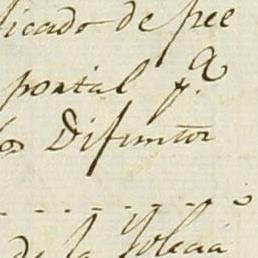 licado de fee
portal p.ª
los Difuntos
de la Iglecia